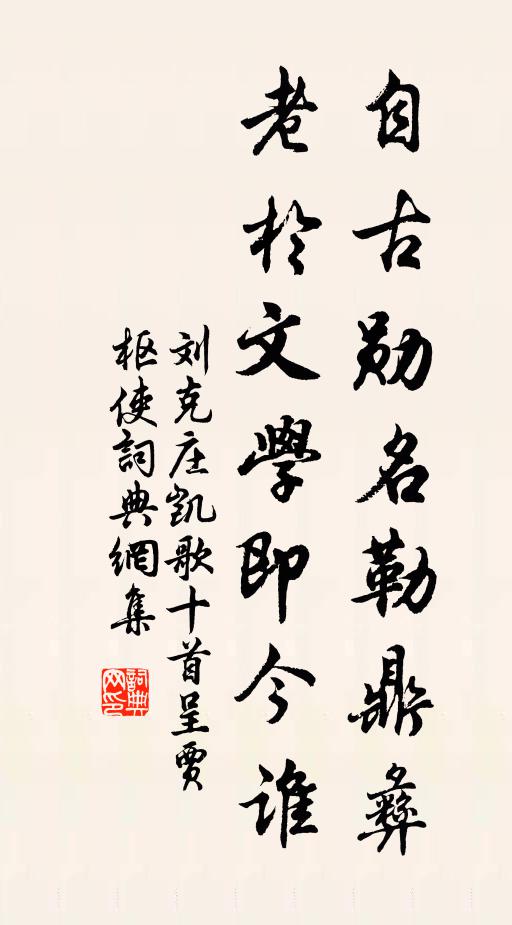 自古勋名勒鼎彝
老於文學即今谁
刘克庄凯歌十首呈贾
枢使詞典網集
詞典
网印